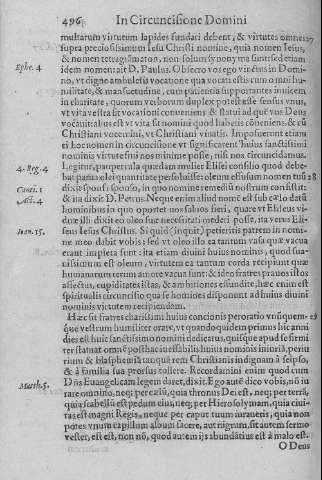 496 In Circuncisione Domini
multarum virtutum lapides fundari debent, & virtutes omnes 27
supra preciosissimum Iesu Christi nomine, quia nomen Iesus,
& nomen tetragramaton, non solum synonyma sunt sed etiam
Ephe. 4 idem nomen: ait D. Paulus. Obsecro vos ego vinctus in Domino,
vt digne ambuletis vocatione qua vocati estis cum omni humilitate,
& mansuetudine, cum patientia supportantes inuicem
in charitate, quorum verborum duplex potest esse sensus vnus,
vt vita vestra sit vocationi conueniens: & statui ad què vos Deus
vocauit: alius est vt vita sit nomini quod habetis côueniens: & cû
Christiani vocemini, vt Christi viuatis. Imposuerunt etiam
ei hoc nomen in circuncisione vt significarent huius sanctissimi
nominis virtute simul nos minime posse, nisi nos circuncidamus.
4. Reg. 4 Legitur, pauperculã quædam mulier Elisei consilio quod debebat
parua olei quantitate persoluisse: oleum effusum nomen tuû 28
Canti. 1 dixit sponsæ sponso, in quo nomine remediû nostrum consistit:
Act. 4 & ita dixit D. Petrus. Neque enim aliud nomê est sub cælo datũ
hominibus in quo oportet nos saluos fieri, quare vt Eliseus viduæ
illi dixit eo oleo suæ necessitati mederi posse, ita verus Eliseus
Ioan. 15. Iesus Christus. Si quid (inquit) petieritis patrem in nomine
meo dabit vobis: sed vt oleo illo ea tantum vasa quæ vacua
erant impleta sunt: ita etiam diuini huius nominis, quod suauissimum
est oleum, virtutem ea tantum corda recipiunt quæ
humanarum rerum amore vacua sunt: & ideo fratres prauos istos
affectus, cupiditates istas, & ambitiones effundite, hæc enim est
spiritualis circuncisio qua se homines disponunt ad huius diuini
nominis virtutem recipiendam.
Hæc sit fratres charissimi huius concionis peroratio vnûquemque 29
vestrum humiliter orare, vt quandoquidem primus hic anni
dies est huic sanctissimo nomini dedicatus, quisque apud se firmiter
statuat omnê posthac inutilê huius nominis iniuriã, periurium
& blasphemiã tanquã rem Christianis indignam, à seipso,
& à familia sua prorsus tollere. Recordamini enim quod cum
Matth. 5. Dñs Euangelicam legem daret, dixit. Ego autê dico vobis, nô iurare
omnino, neq; per cælû, quia thronus Dei est, neq; per terrã,
quia scabellû est pedum eius, neq; per Hierosolymam, quia ciuitas
est magni Regis, neque per caput tuum iuraueris, quia non
potes vnum capillum album facere, aut nigrum, sit autem sermo
vester, est est, non nô, quod autem ijs abundãtius est à malo est.
O Deus